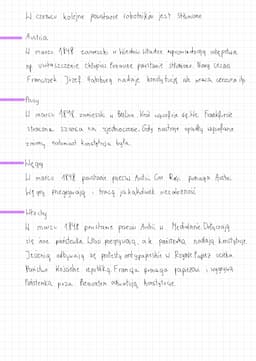 W czerwcu kolejne powstanie robotników jest stłumione
Austria
W marcu 1848 zamieszki w Wiedniu Władze wprowadzają ustępstwa
np. uwłaszczenie chłopów Ponowne powstanie stłumione. Nowy cesarz
Franciszek Józef Habsburg nadaje konstytucję ale wraca cenzura itp.
Prusy
W marcu 1848 zamieszki w Berlinie. Król wycofuje się We Frankfurcie
stracona szansa na zjednoczenie. Gdy nastroje opadły wycofano
zmiany, natomiast konstytucja była.
Węgry
W marcu 1848 powstanie przeciw Austrii Car Rosji pomaga Austrii
Węgrzy przegrywają i tracą jakąkolwiek niezależność
Włochy
W marcu 1848 powstanie przeciw Austrii w Mediolanie Dołączają
się inne państewka Włosi przegrywają, ale państewka nadają konstytucje
Jesienią odbywają się protesty antypapieskie w Rzymie Papież ucieka
Państwo Kościelne republiką Francja pomaga papieżowi i wygrywa
Państewka poza Piemontem odwołują konstytucje.